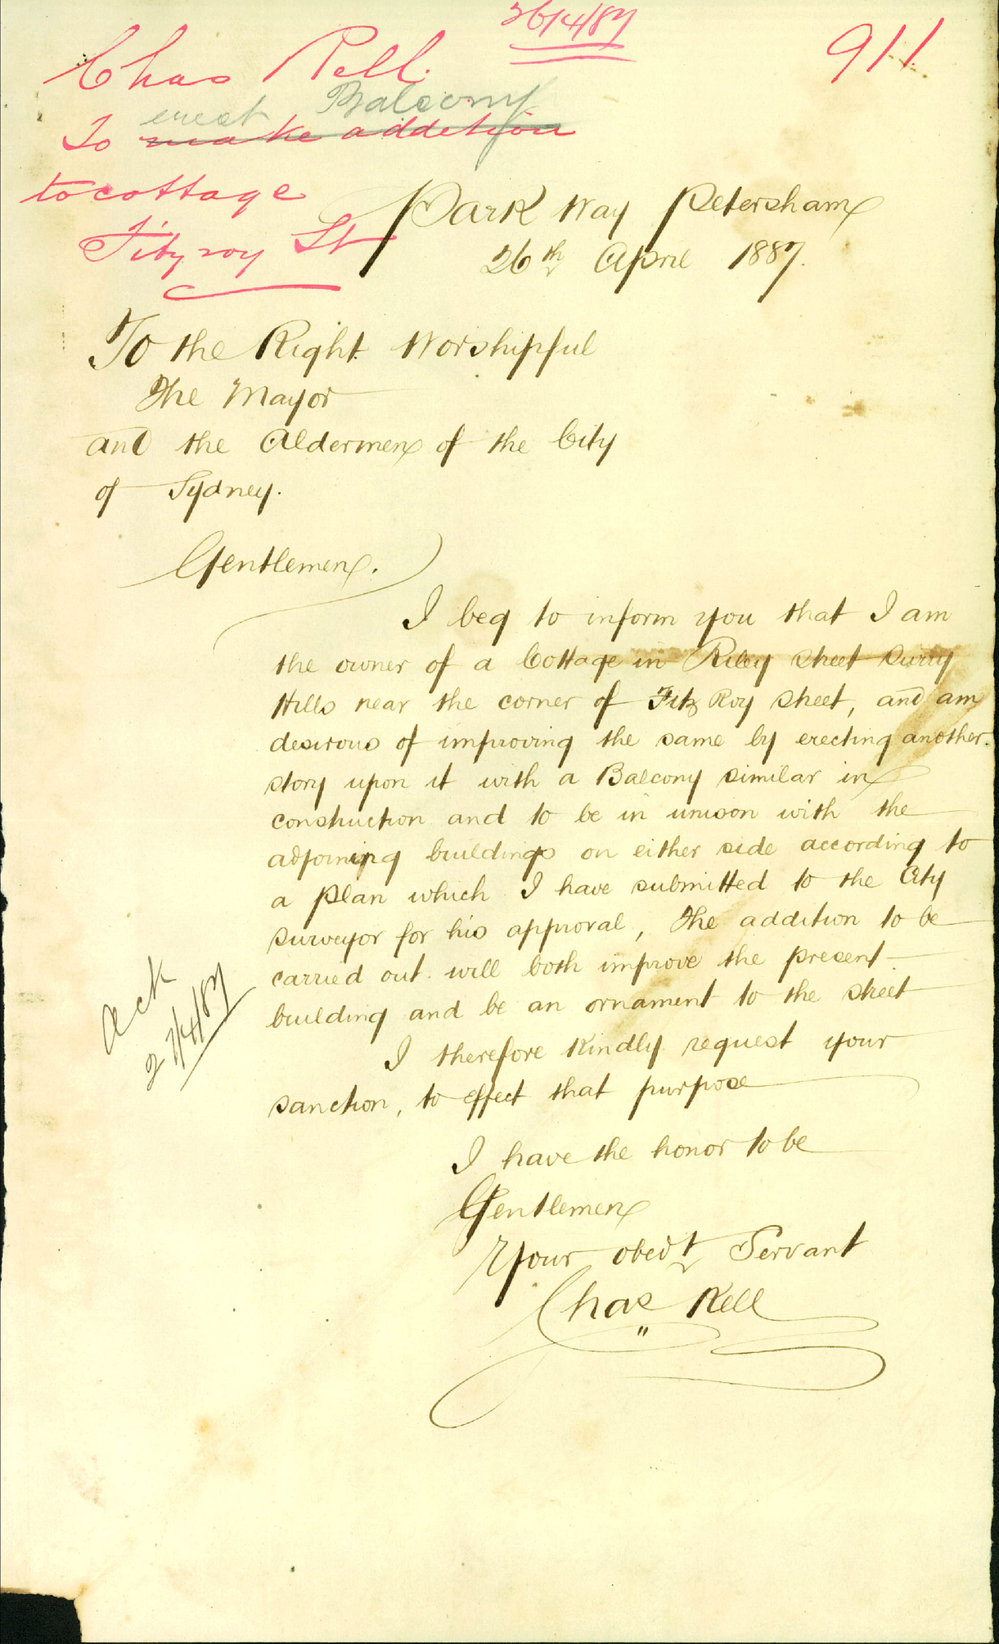 26/4/87
911
Chas Rell.
erect Balcony
To make addetion
to cottage
Fitzroy St
Park Way Petersham
26th April 1887.
To the Right Worshipful
The Mayor
and the Aldermen of the City
of Sydney.
Gentlemen.
I beg to inform you that I am
the owner of a Cottage in Riley street Surry
Hills near the corner of Fitz Roy street, and am
desirous of improving the same by erecting another
story upon it with a Balcony similar in
construction and to be in unison with the
adjoining buildings on either side according to
a plan which I have submitted to the City
surveyor for his approval, The addition to be
carried out will both improve the present
building and be an ornament to the street
I therefore kindly request your
sanction, to effect that purpose
Ack
27/4/87
I have the honor to be
Gentlemen
Your obedt Servant
Chas Rell